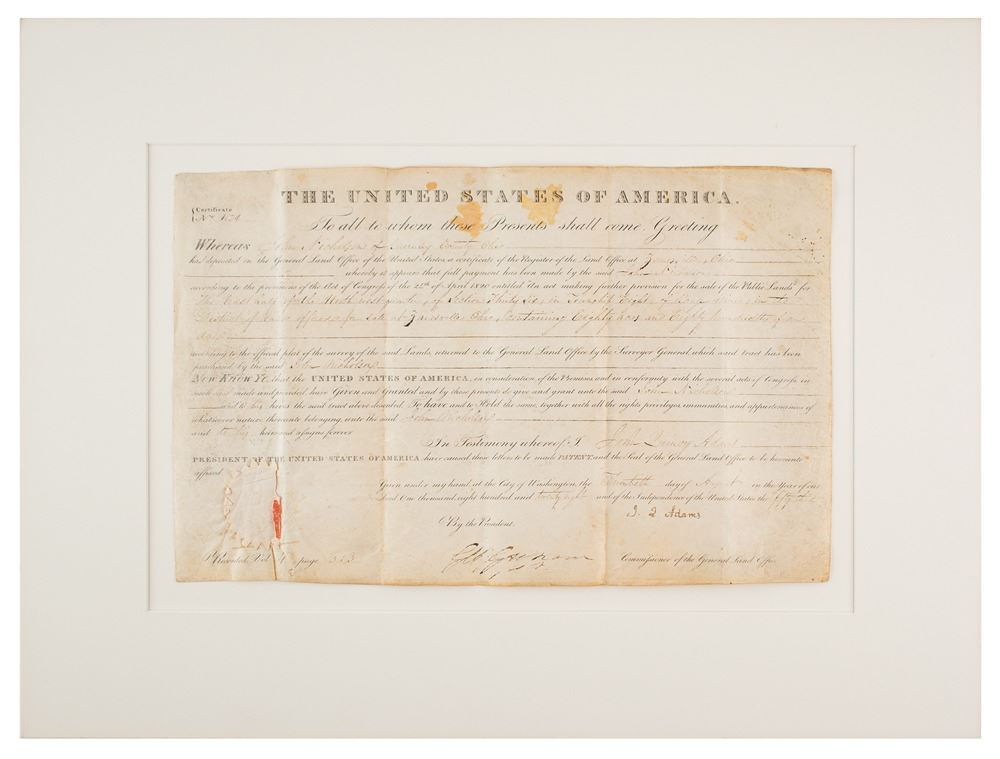 THE UNITED STATES OF AMERICA.
Certificate
No.
To all to whom these Presents shall come, Greeting
Whereas John Nicholson of County Ohio
has deposited in the General Land Office of the United States, a certificate of the Register of the Land Office at Ohio
whereby it appears that full payment has been made by the said John Nicholson
according to the provisions of the Act of Congress of the 24th of April 1820 entitled An act making further provision for the sale of the Public Lands for
The East half of the North west quarter of Section Thirty Six, in Township Eight, of Range in the
District of Lands offered for Sale at Zanesville Ohio, Containing Eighty and Eighty hundredths of an
acre
according to the official plat of the survey of the said Lands, returned to the General Land Office by the Surveyor General, which said tract has been
purchased by the said John Nicholson
NOW KNOW YE, that the UNITED STATES OF AMERICA, in consideration of the Premises and in conformity with the several acts of Congress in
such case made and provided, have Given and Granted and by these presents do give and grant unto the said John Nicholson
and to his heirs the said tract above described, To have and to Hold the same, together with all the rights privileges, immunities, and appurtenances of
whatsoever nature thereunto belonging, unto the said John Nicholson
and to his heirs and assigns forever
In Testimony whereof, I John Quincy Adams
PRESIDENT OF THE UNITED STATES OF AMERICA, have caused these letters to be made PATENT, and the Seal of the General Land Office to be hereunto
affixed
Given under my hand at the City of Washington, the day of in the Year of our
Lord One thousand eight hundred and twenty eight and of the Independence of the United States the
J. Q Adams
By the President.
Commissioner of the General Land Office
Recorded, Vol page